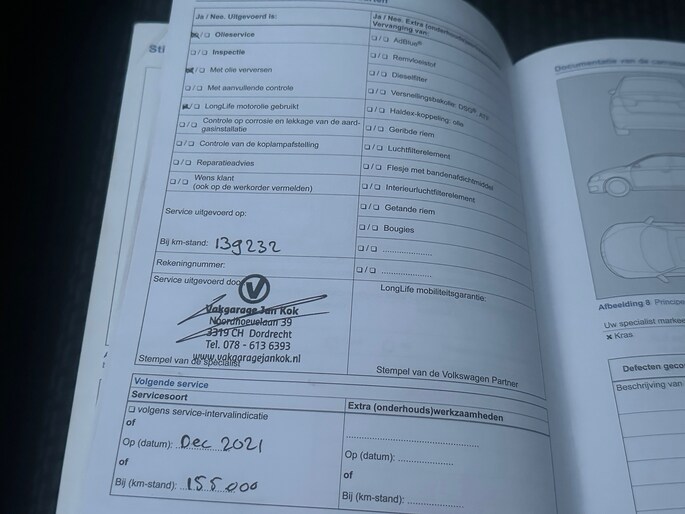 Ja / Nee. Uitgevoerd is:
☒/☐ Olieservice
☐/☐ Inspectie
☒/☐ Met olie verversen
☐/☐ Met aanvullende controle
☒/☐ LongLife motorolie gebruikt
☐/☐ Controle op corrosie en lekkage van de aard-
gasinstallatie
☐/☐ Controle van de koplampafstelling
☐/☐ Reparatieadvies
☐/☐ Wens klant
(ook op de werkorder vermelden)
Service uitgevoerd op:
Bij km-stand: 139232
Rekeningnummer:
Service uitgevoerd door
Vakgarage Jan Kok
Noordhoevelaan 39
3319 CH Dordrecht
Tel. 078 - 613 6393
www.vakgaragejankok.nl
Stempel van de specialist
Ja / Nee. Extra (onderhouds)
Vervanging van:
☐/☐ AdBlue®
☐/☐ Remvloeistof
☐/☐ Dieselfilter
☐/☐ Versnellingsbakolie: DSG®,
☐/☐ Haldex-koppeling: olie
☐/☐ Geribde riem
☐/☐ Luchtfilterelement
☐/☐ Flesje met bandenafdichtmiddel
☐/☐ Interieurluchtfilterelement
☐/☐ Getande riem
☐/☐ Bougies
☐/☐ ....................
☐/☐ ....................
LongLife mobiliteitsgarantie:
Stempel van de Volkswagen Partner
Volgende service
Servicesoort
☐ volgens service-intervalindicatie
of
Op (datum): Dec 2021
of
Bij (km-stand): 155000
Extra (onderhouds)werkzaamheden
Op (datum): ...............
of
Bij (km-stand): ...............
Documentatie van de
Afbeelding 8 Principe
Uw specialist
× Kras
Defecten
Beschrijving van